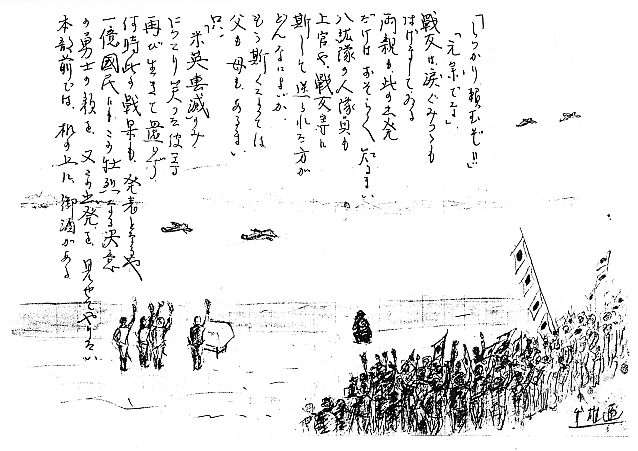 「しっかり頼むぞ!!」
「元気でな」
戦友は涙ぐみつゝも
はげましてゐる
両親も此の出発
だけはおそらく知るまい
八紘隊の人隊員も
上官や、戦友等に
斯して送られた方が
どんなによいか、
もう斯くなっては
父も母もあるまい
只、
「米英撃滅のみ」
にっこり笑った彼等
再び生きて還らず
何時此の戦果も、発表となるや
一億國民にもこの壮烈なる決意
の勇士の顔を、又この出発を、見せてやりたい
本部前では、机の上に、御酒がある
雄画